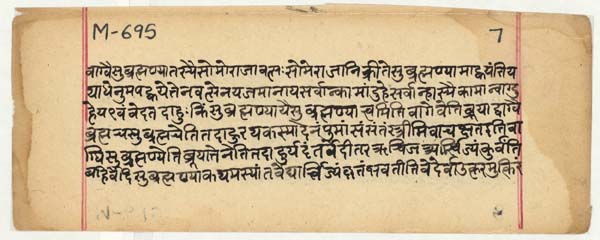 M-695
7
वाग्वैसुब्रह्मण्यातस्यैसोमोराजावत्सःसोमेराजनिक्रीतेसुब्रह्मण्यामाह्वयंतिय
थाधेनुमुपह्वयेत्तेनवत्सेनयजमानायसर्वान्कामांदुहेसर्वान्हास्मैकामान्वाग्दु
हेयएवंवेदतदाहुःकिंसुब्रह्मण्यायैसुब्रह्मण्यात्वमितिवागेवेतिब्रूयाद्वाग्वै
ब्रह्मचसुब्रह्मचेतितदाहुरथकस्मादेनंपुमांसंसंतंस्त्रीमिवाचक्षतइतिवा
ग्घिसुब्रह्मण्येतिब्रूयात्तेनेतितदाहुर्यदंतर्वेदीतरऋत्विजआर्त्विज्यंकुर्वंति
बहिर्वेदिसुब्रह्मण्याकथमस्यांतर्वेद्यार्त्विज्यंकृतंभवतीतिवेदेर्वाउत्करमुत्किरं